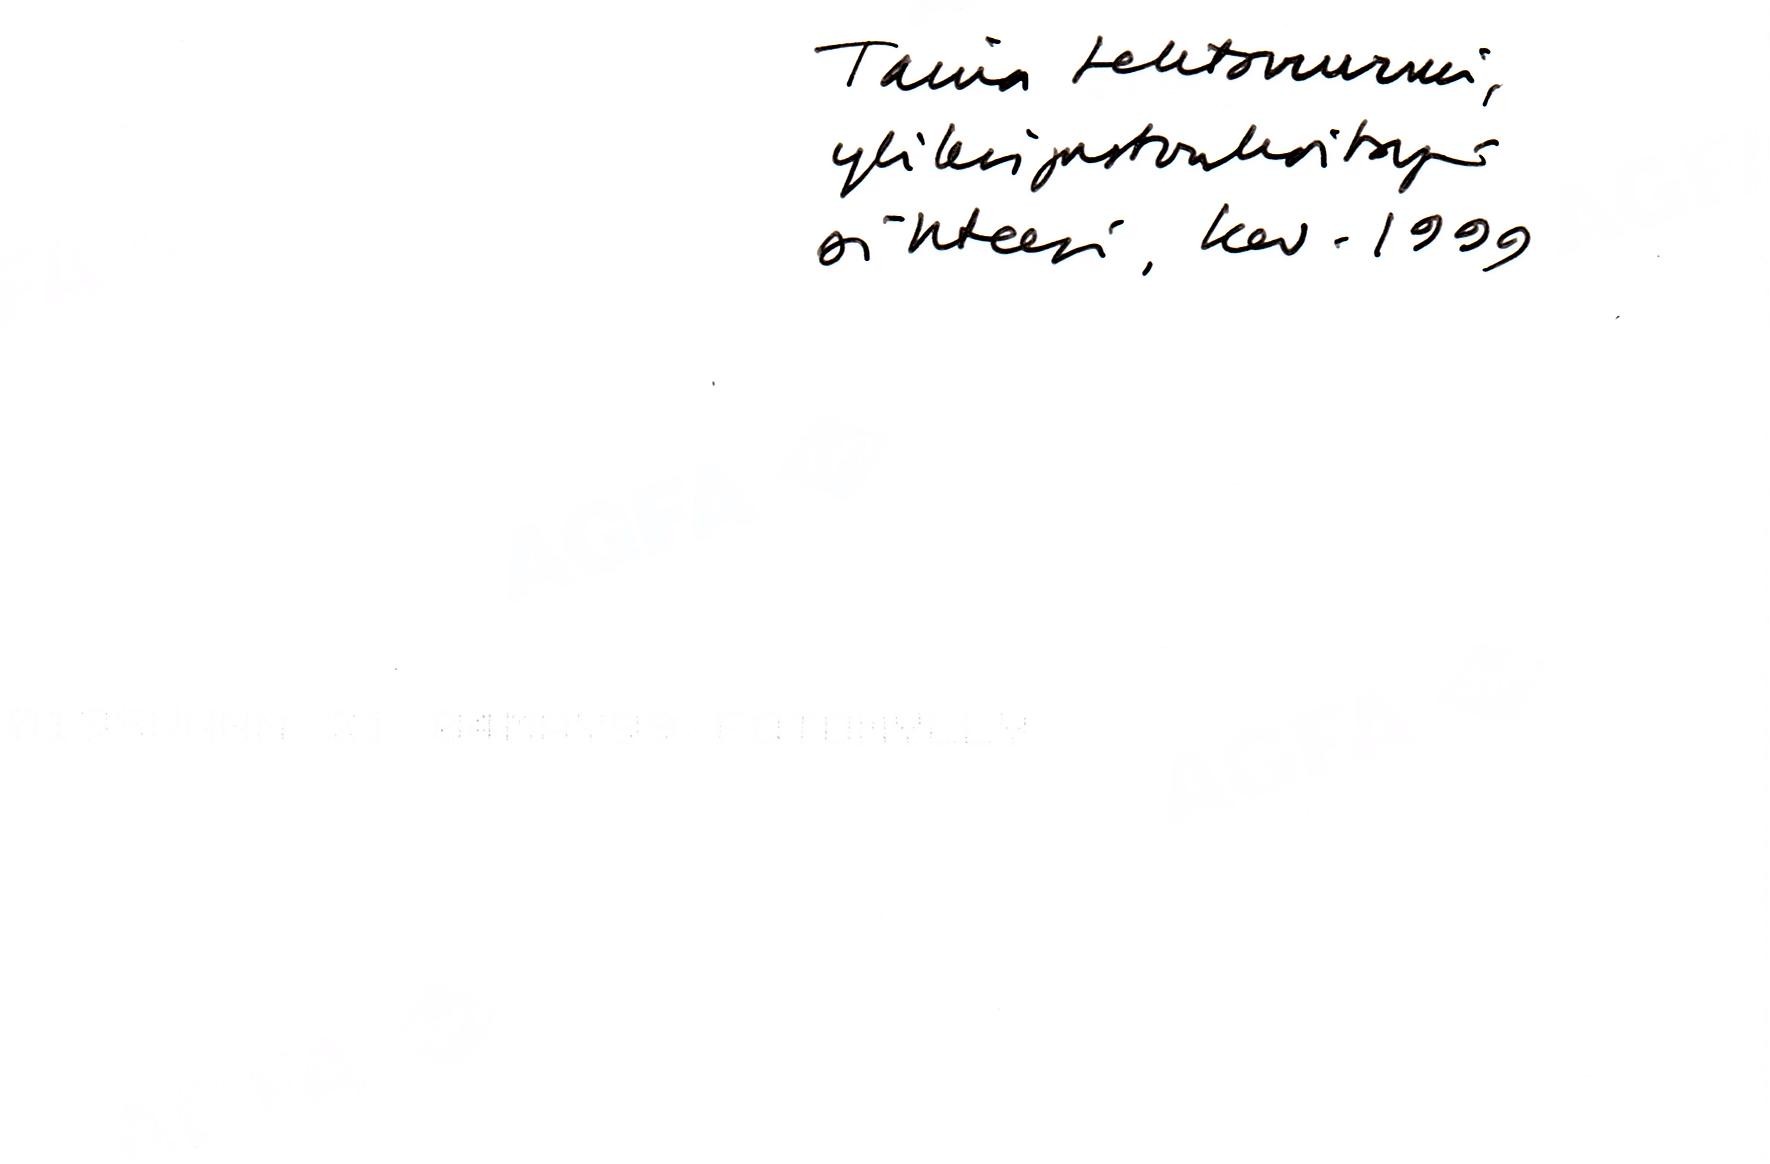 Taina Lehtonurmi,
ylikirjastonhoitajan
sihteeri, kev. 1999
AGFA
AGFA